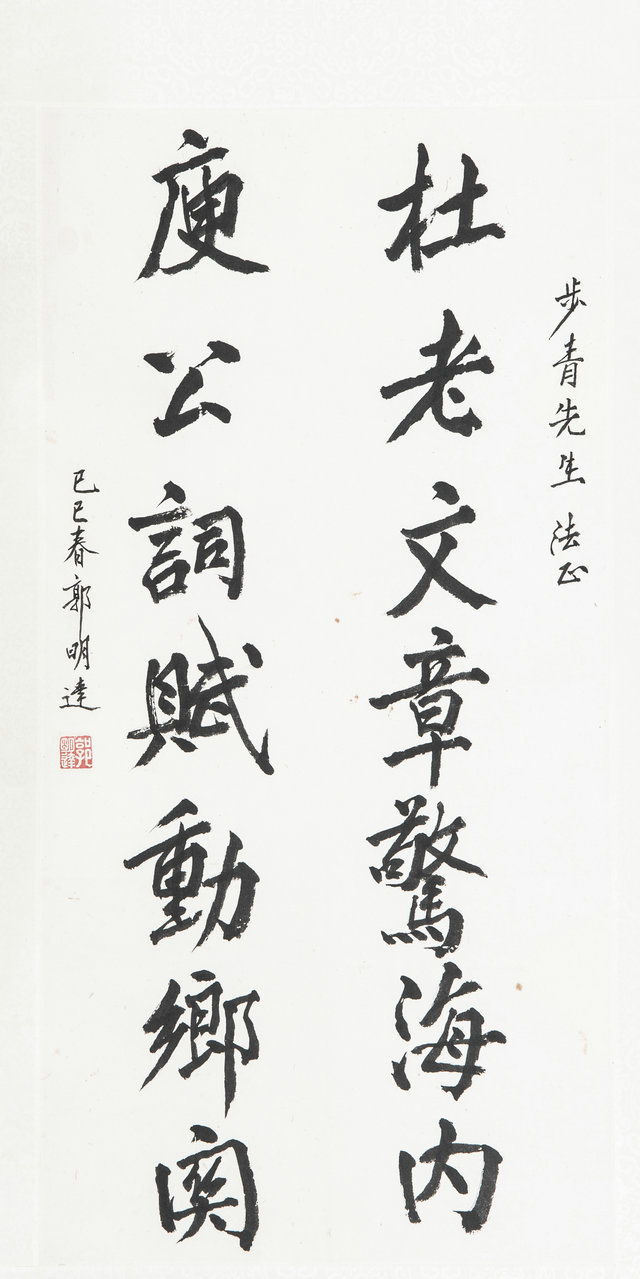 步青先生 法正
杜老文章驚海内
庾公詞賦動鄉関
己巳春郭明達
郭明達